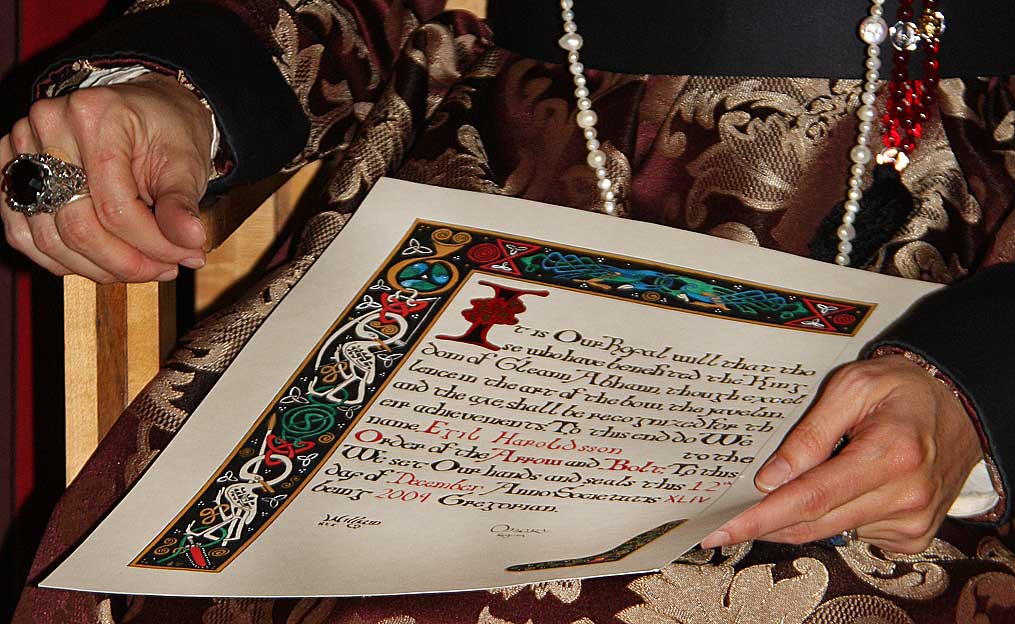 It is Our Royal will that tho
se who have benefited the King
dom of Gleann Abhann though excel
lence in the art of the bow, the javelin,
and the axe, shall be recognized for th
eir achievements. To this end do We
name Egil Haroldsson to the
Order of the Arrow and Bolt. To this
We set Our hands and seals this 12th
day of December Anno Societatis XLIV
being 2004 Gregorian.